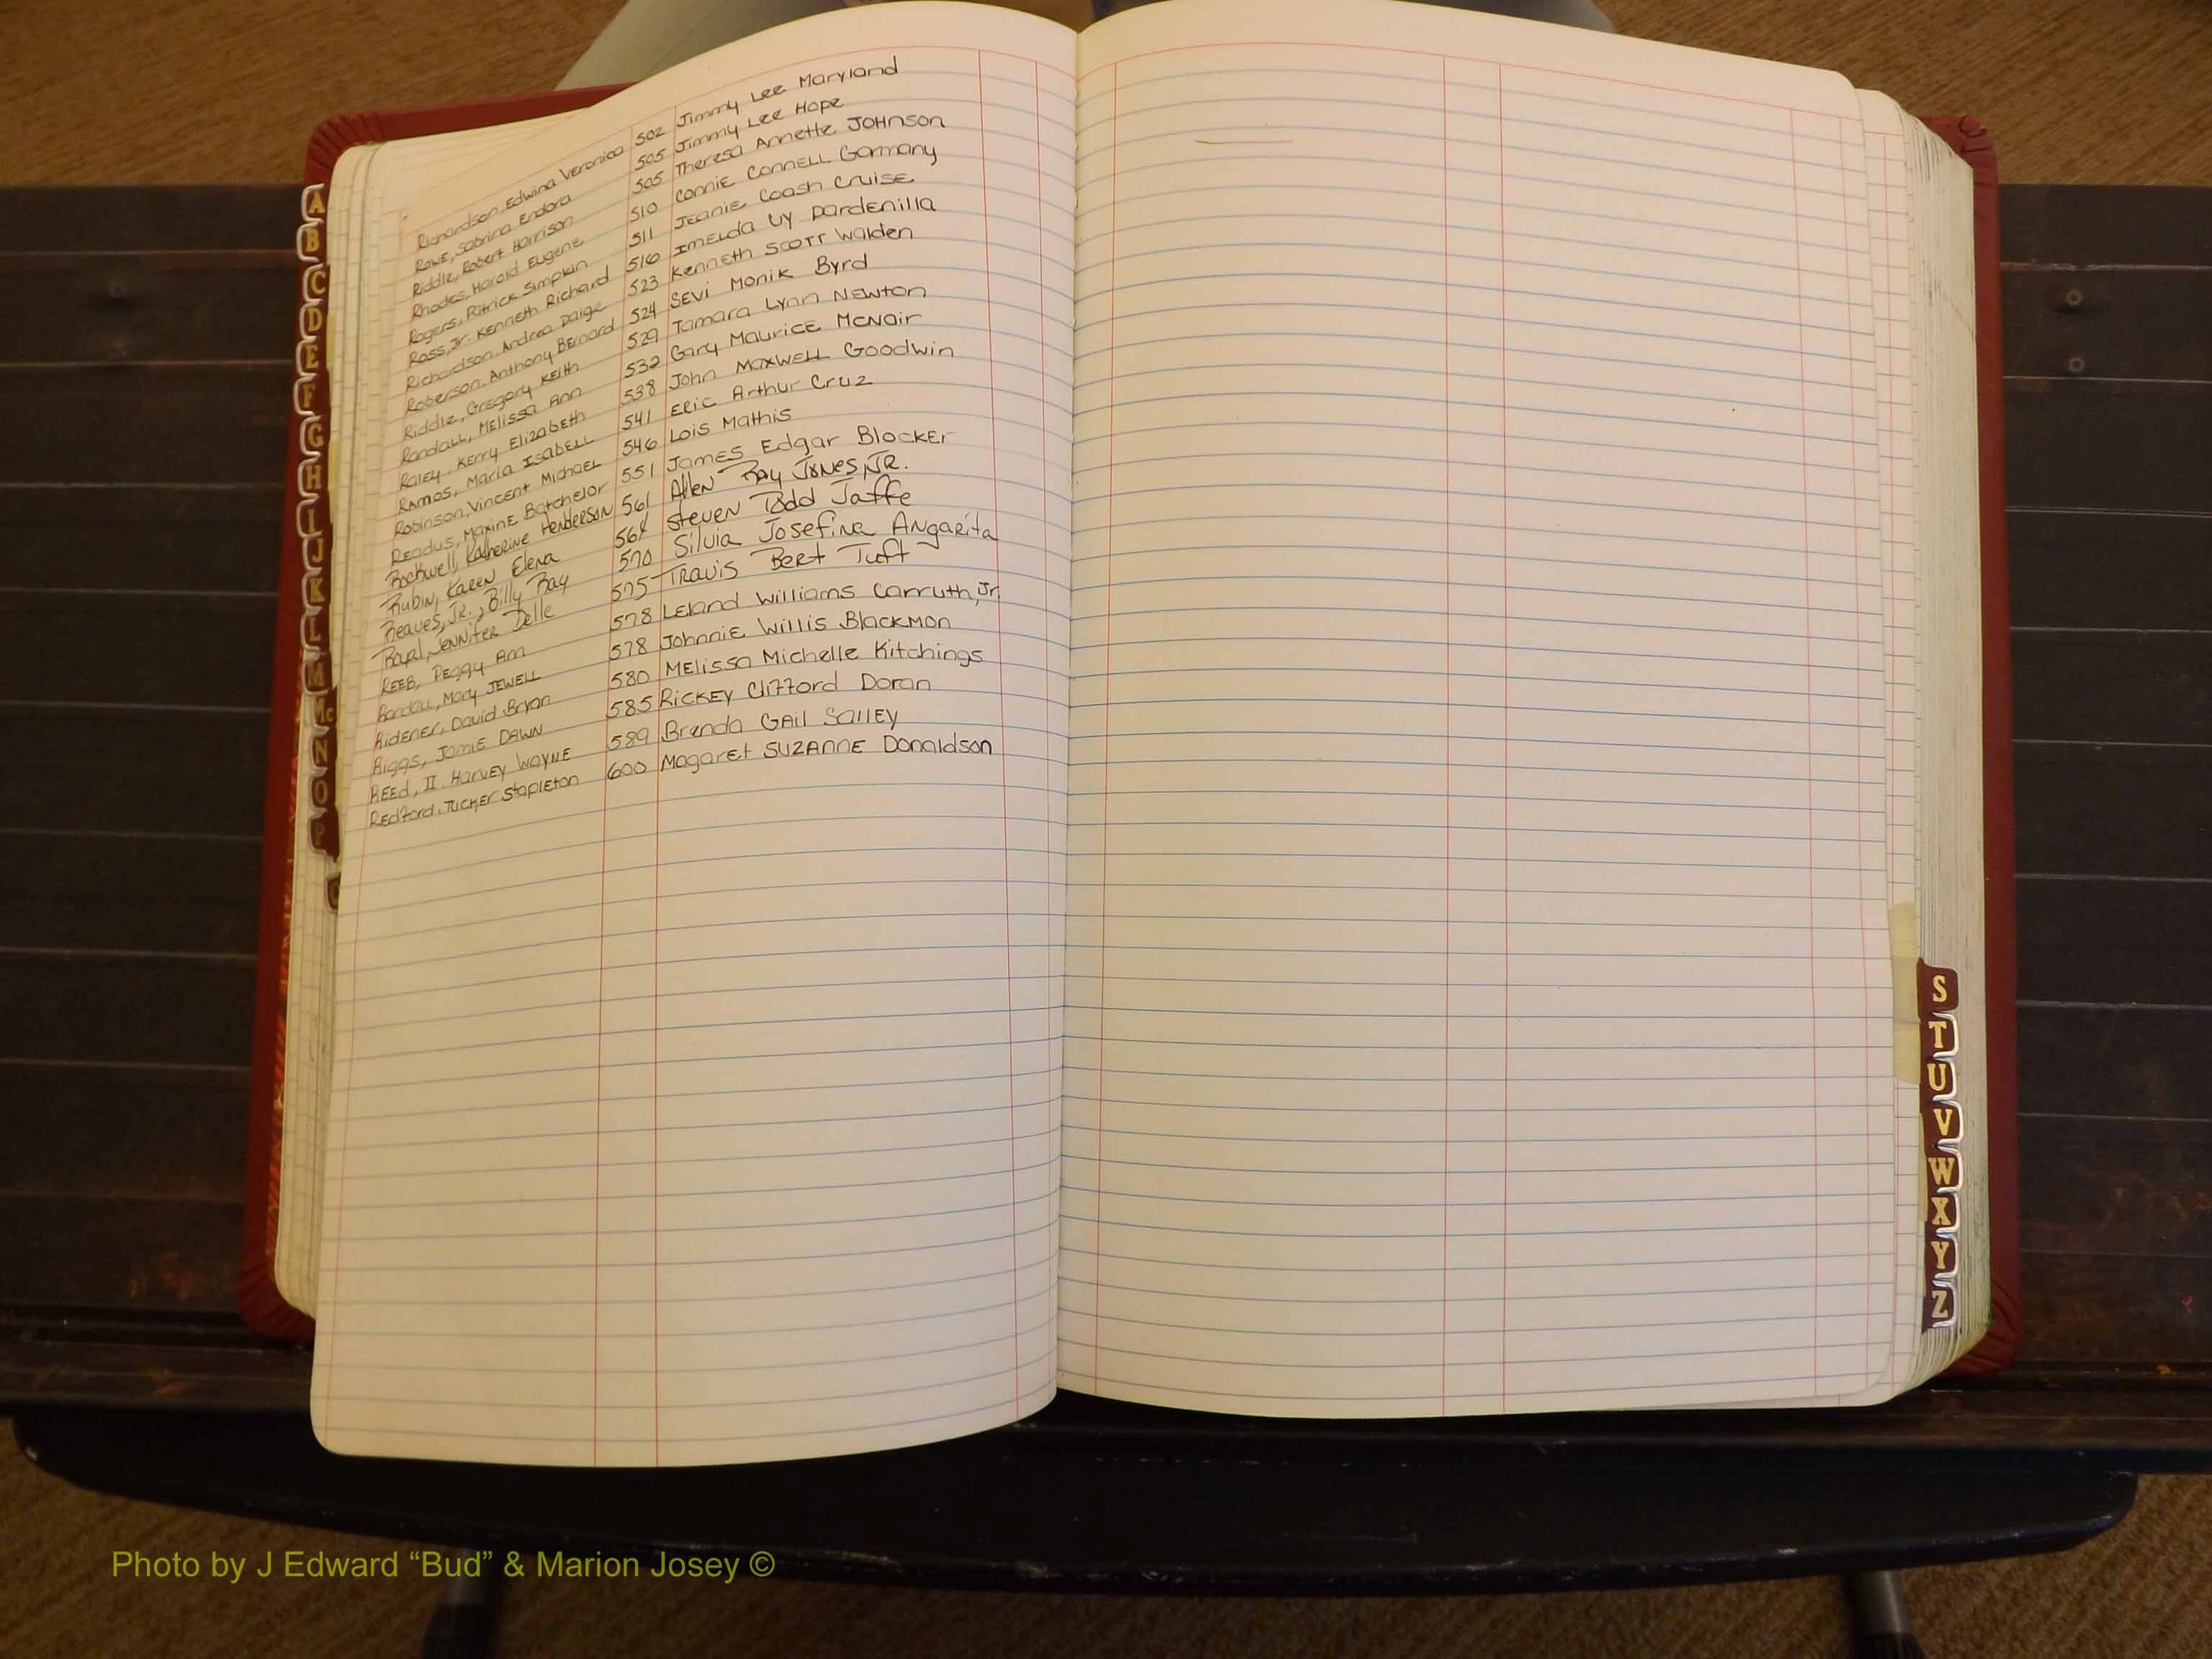 Richardson, Edwina Veronica 502 Jimmy Lee Maryland
Rowe, Sabrina Endora 505 Jimmy Lee Hope
Riddle, Robert Harrison 505 Theresa Annette Johnson
Rhodes, Harold Eugene 510 Connie Connell Garmany
Rogers, Patrick Simpkin 511 Jeanie Coash Cruise
Ross, Jr. Kenneth Richard 516 Imelda Uy Dardenilla
Richardson, Andrea Paige 523 Kenneth Scott Walden
Roberson, Anthony Bernard 524 Sevi Monik Byrd
Riddle, Gregory Keith 529 Tamara Lynn Newton
Randall, Melissa Ann 532 Gary Maurice McNair
Raley, Kerry Elizabeth 538 John Maxwell Goodwin
Ramos, Maria Isabell 541 Eric Arthur Cruz
Robinson, Vincent Michael 546 Lois Mathis
Readus, Maxine Batchelor 551 James Edgar Blocker
Rockwell, Katherine Henderson 561 Allen Ray Jones, Jr.
Rubin, Karen Elena Steven Todd Jaffe
Reaves, Jr., Billy Ray 570 Silvia Josefina Angarita
Jennifer Delle 575 Travis Bert Tuft
Reeb, Peggy Ann 578 Leland Williams Carruth, Jr.
Randall, Mary Jewell 578 Johnnie Willis Blackmon
Ridener, David Bryan 580 Melissa Michelle Kitchings
Riggs, Jamie Dawn 585 Rickey Clifford Doran
Reed, II. Harvey Wayne 589 Brenda Gail Salley
Redford, Tucker Stapleton 600 Magaret Suzanne Donaldson
A
B
C
D
E
F
G
H
I
J
K
L
M
Mc
N
O
P
S
T
U
V
W
X
Y
Z
Photo by J Edward “Bud” & Marion Josey ©